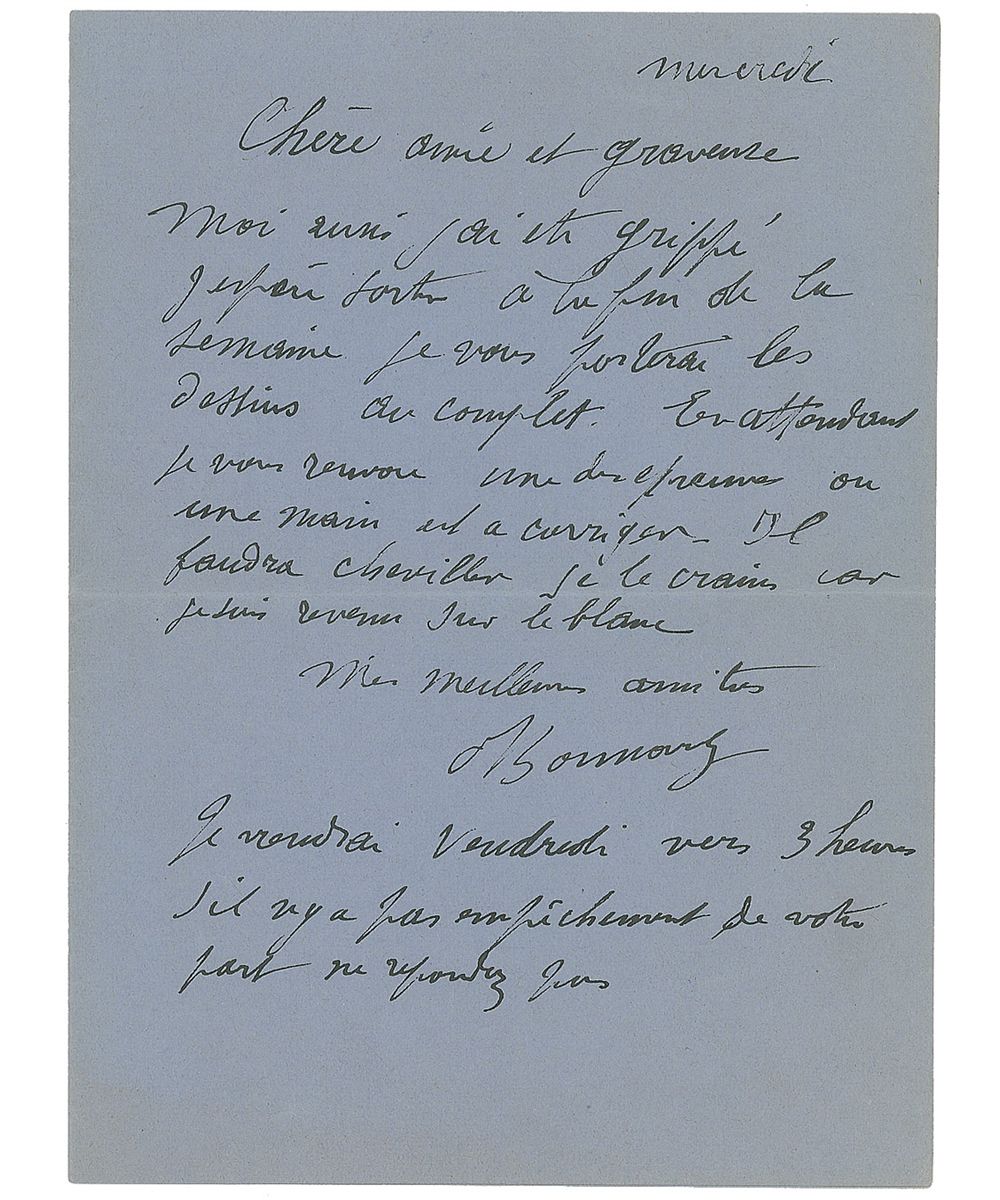 mercredi
Chère amie et graveuse
Moi aussi j'ai été grippé
J'espère sortir à la fin de la
semaine je vous porterai les
dessins au complet. En attendant
je vous renvoie une des épreuves ou
une main est a corriger Il
faudra cheviller je le crains car
je suis revenu sur le blanc
Mes meilleures amitiés
PBonnard
Je viendrai Vendredi vers 3 heures
s'il n'y a pas empêchement de votre
part ne répondez pas